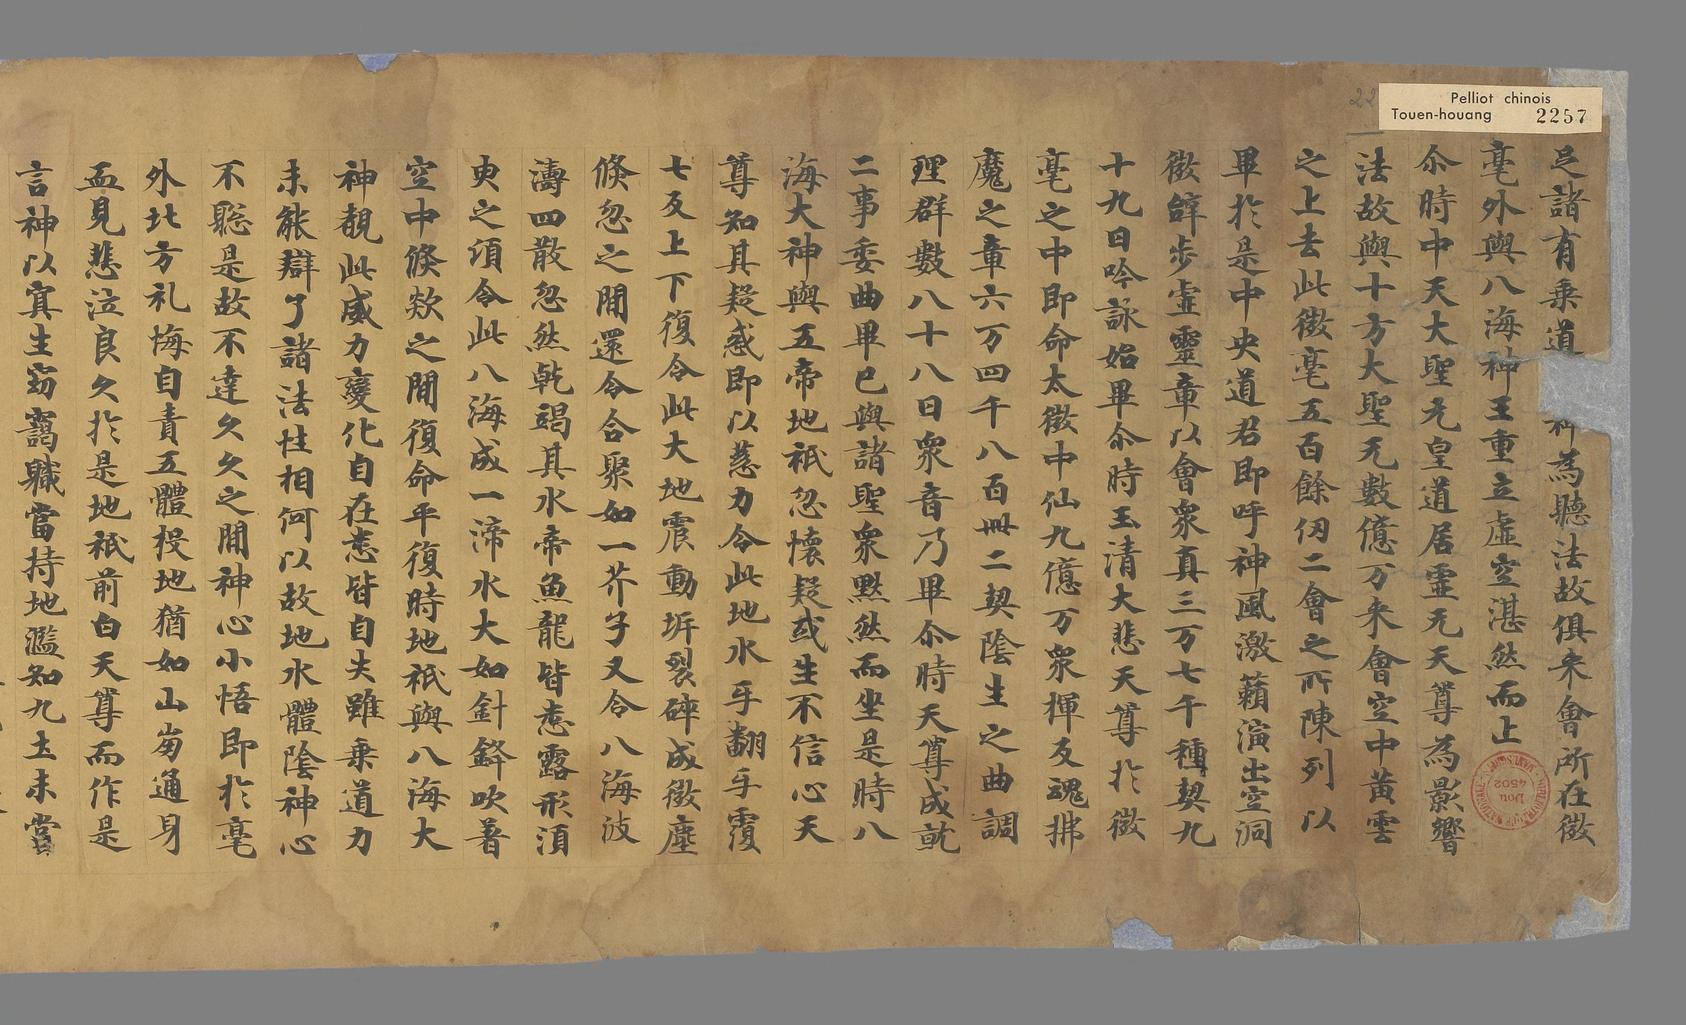 Pelliot chinois
Touen-houang 2257
足諸有乗道神為聽法故俱来會所在微
毫外與八海神王重立虛空湛然而止
尒時中天大聖无皇道居靈无天尊為影響
法故與十方大聖无數億万来會空中黄雲
之上去此微毫五百餘仞二會之所陳列以
畢於是中央道君即呼神風激籟演出空洞
徵辝步虛靈章以會衆真三万七千種契九
十九日吟詠始畢尒時玉清大悲天尊於微
毫之中即命太微中仙九億万衆揮反魂拂
魔之章六万四千八百卌二契陰生之曲調
理群數八十八日衆音乃畢尒時天尊成就
二事委曲畢已與諸聖衆黙然而坐是時八
海大神與五帝地祇忽懷疑或生不信心天
尊知其疑惑即以慈力令此地水乎翻乎覆
七反上下復令此大地震動坼裂碎成微塵
倏忽之間還令合聚如一芥子又令八海波
濤四散忽然乾竭其水帝魚龍皆悉露形須
臾之須令此八海成一渧水大如針鋒吹著
空中倏欻之間復命平復時地祇與八海大
神覩此威力變化自在悉皆自失雖乗道力
未能辯了諸法性相何以故地水體陰神心
不聦是故不達久久之間神心小悟即於毫
外北方礼悔自責五體投地猶如山崩通身
血見悲泣良久於是地祇前白天尊而作是
言神以寘生窈藹職當持地濫知九土未嘗